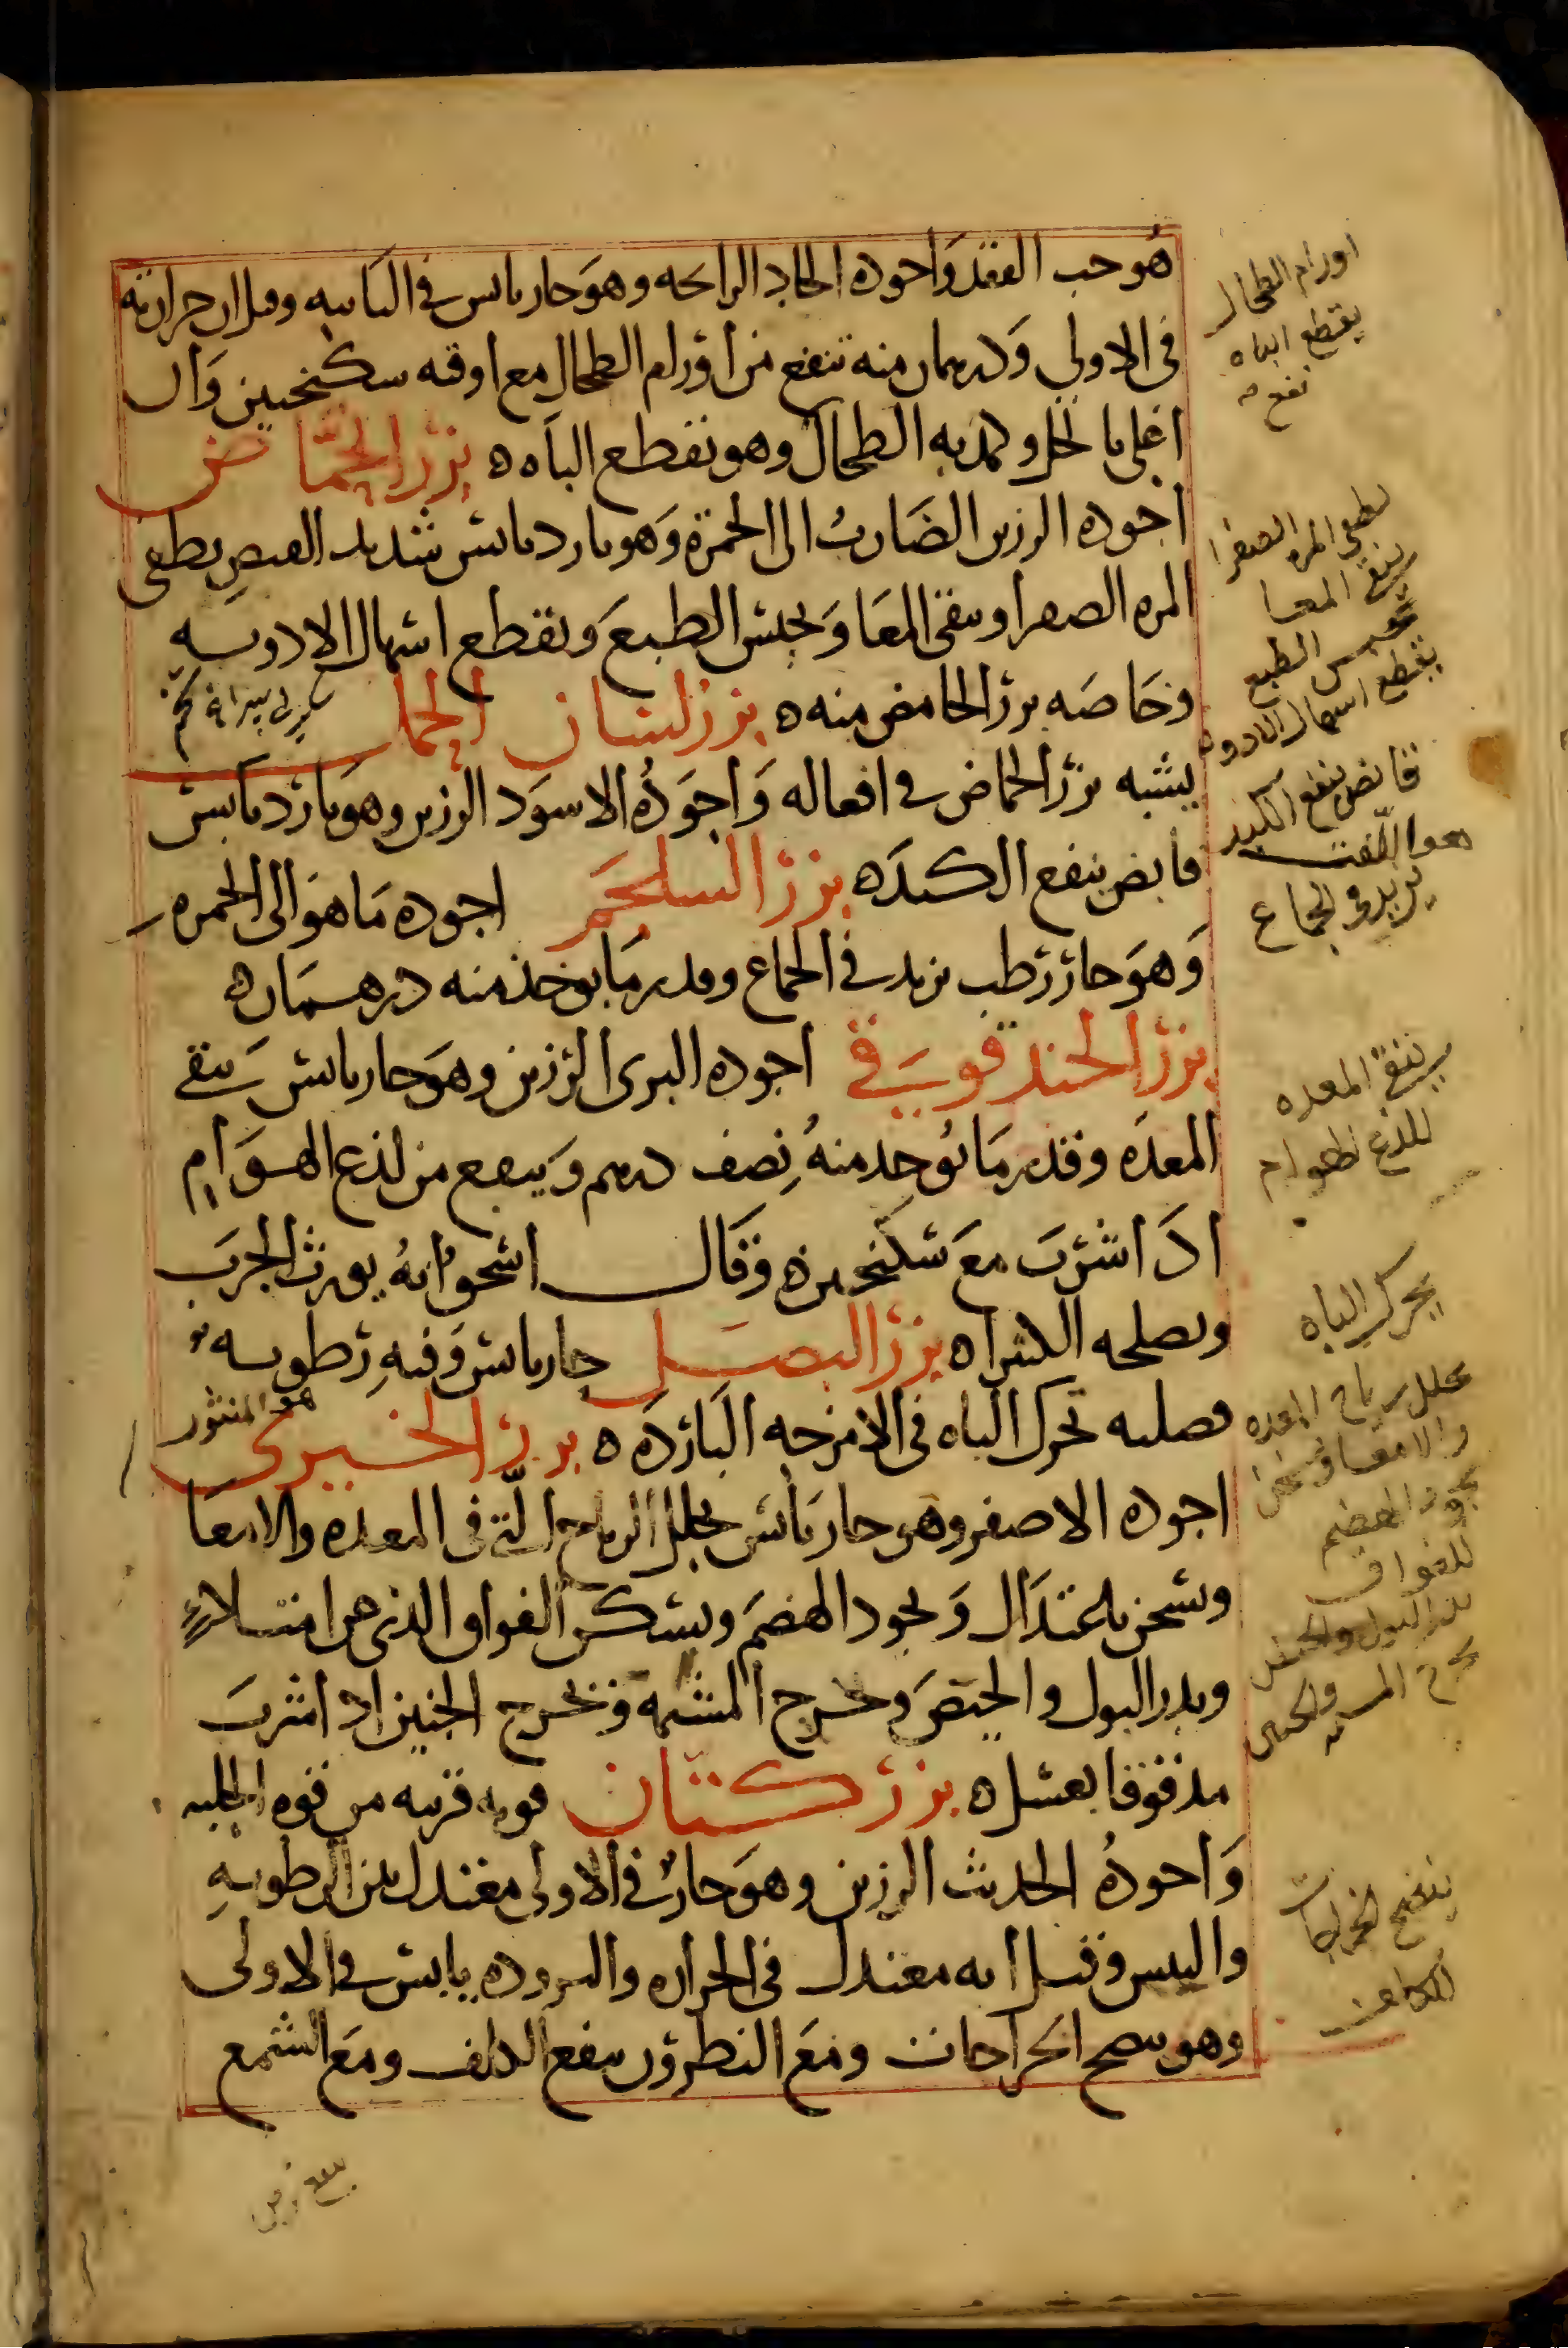 هو حب الفقد واجوده الحاد الرائحه وهو حار يابس في الثانيه وقيل ان حرارته
في الاولي ودرهمان منه تنفع من اورام الطحال مع اوقه سكنجبين وان
اغلي بالخل وكمد به الطحال وهو يقطع الباه ه بزر الحماض
اجوده الرزين الضارب الى الحمرة وهو بارد يابس شديد القبض يطفى
المره الصفرا وينقى المعا ويحبس الطبع ويقطع اسهال الادويه
وخاصه بزر الحامض منه ه بزر لسان الحمل
يشبه بزر الحماض في افعاله واجوده الاسود الرزين وهو بارد يابس
قابض ينفع الكبد ه بزر السلجم اجوده ما هو الى الحمره
وهو حار رطب يزيد في الجماع وقدر ما يوخذ منه درهمان ه
بزر الحندقوقي اجوده البرى الرزين وهو حار يابس ينقى
المعده وقدر ما يوخذ منه نصف درهم وينفع من لذع الهوام
اذا شرب مع سكنجبين ه وقال اسحق انه يورث الجرب
ويصلحه الكثيرا ه بزر البصل حار يابس وفيه رطوبه
فصليه تحرك الباه في الامزجه البارده ه بزر الخيرى
هو المنثور
اجوده الاصفر وهو حار يابس يحلل الرياح التي في المعده والامعا
ويسخن باعتدال ويجود الهضم ويسكن الفواق الذي من امتلاء
ويدر البول والحيض ويخرج المشيمه ويخرج الجنين اذا شرب
مدقوقا بعسل ه بزر كتان قوته قريبه من قوه الحلبه
واجوده الحديث الرزين وهو حار في الاولى معتدل بين الرطوبه
واليبس وقيل انه معتدل في الحراره والبروده يابس في الاولى
وهو ينضج الجراحات ومع النطرون ينفع الكلف ومع الشمع
اورام الطحال
يقطع الباه
يطفى المره الصفرا
ينقى المعا
يحبس الطبع
يقطع اسهال الادويه
قابض ينفع الكبد
هو اللفت
يزيد في الجماع
ينقى المعده
للذع الهوام
يحرك الباه
يحلل رياح المعده
والامعا ويسخن
يجود الهضم
للفواق
يدر البول والحيض
ينضج الجراحات
الكلف